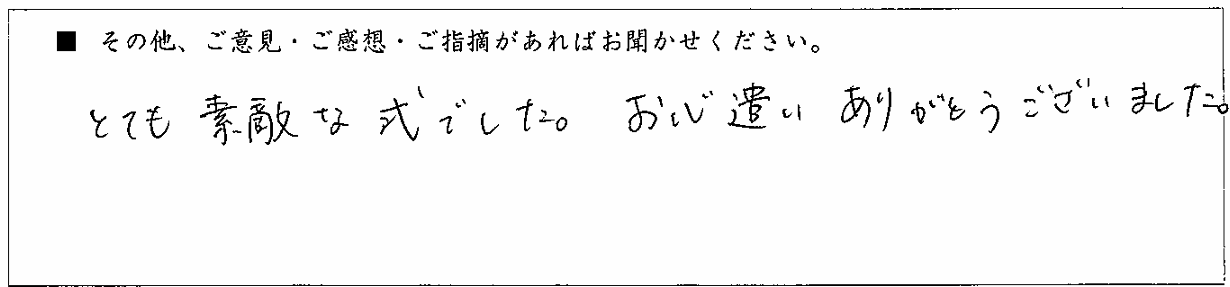 ■ その他、ご意見・ご感想・ご指摘があればお聞かせください。
とても素敵な式でした。お心遣いありがとうございました。